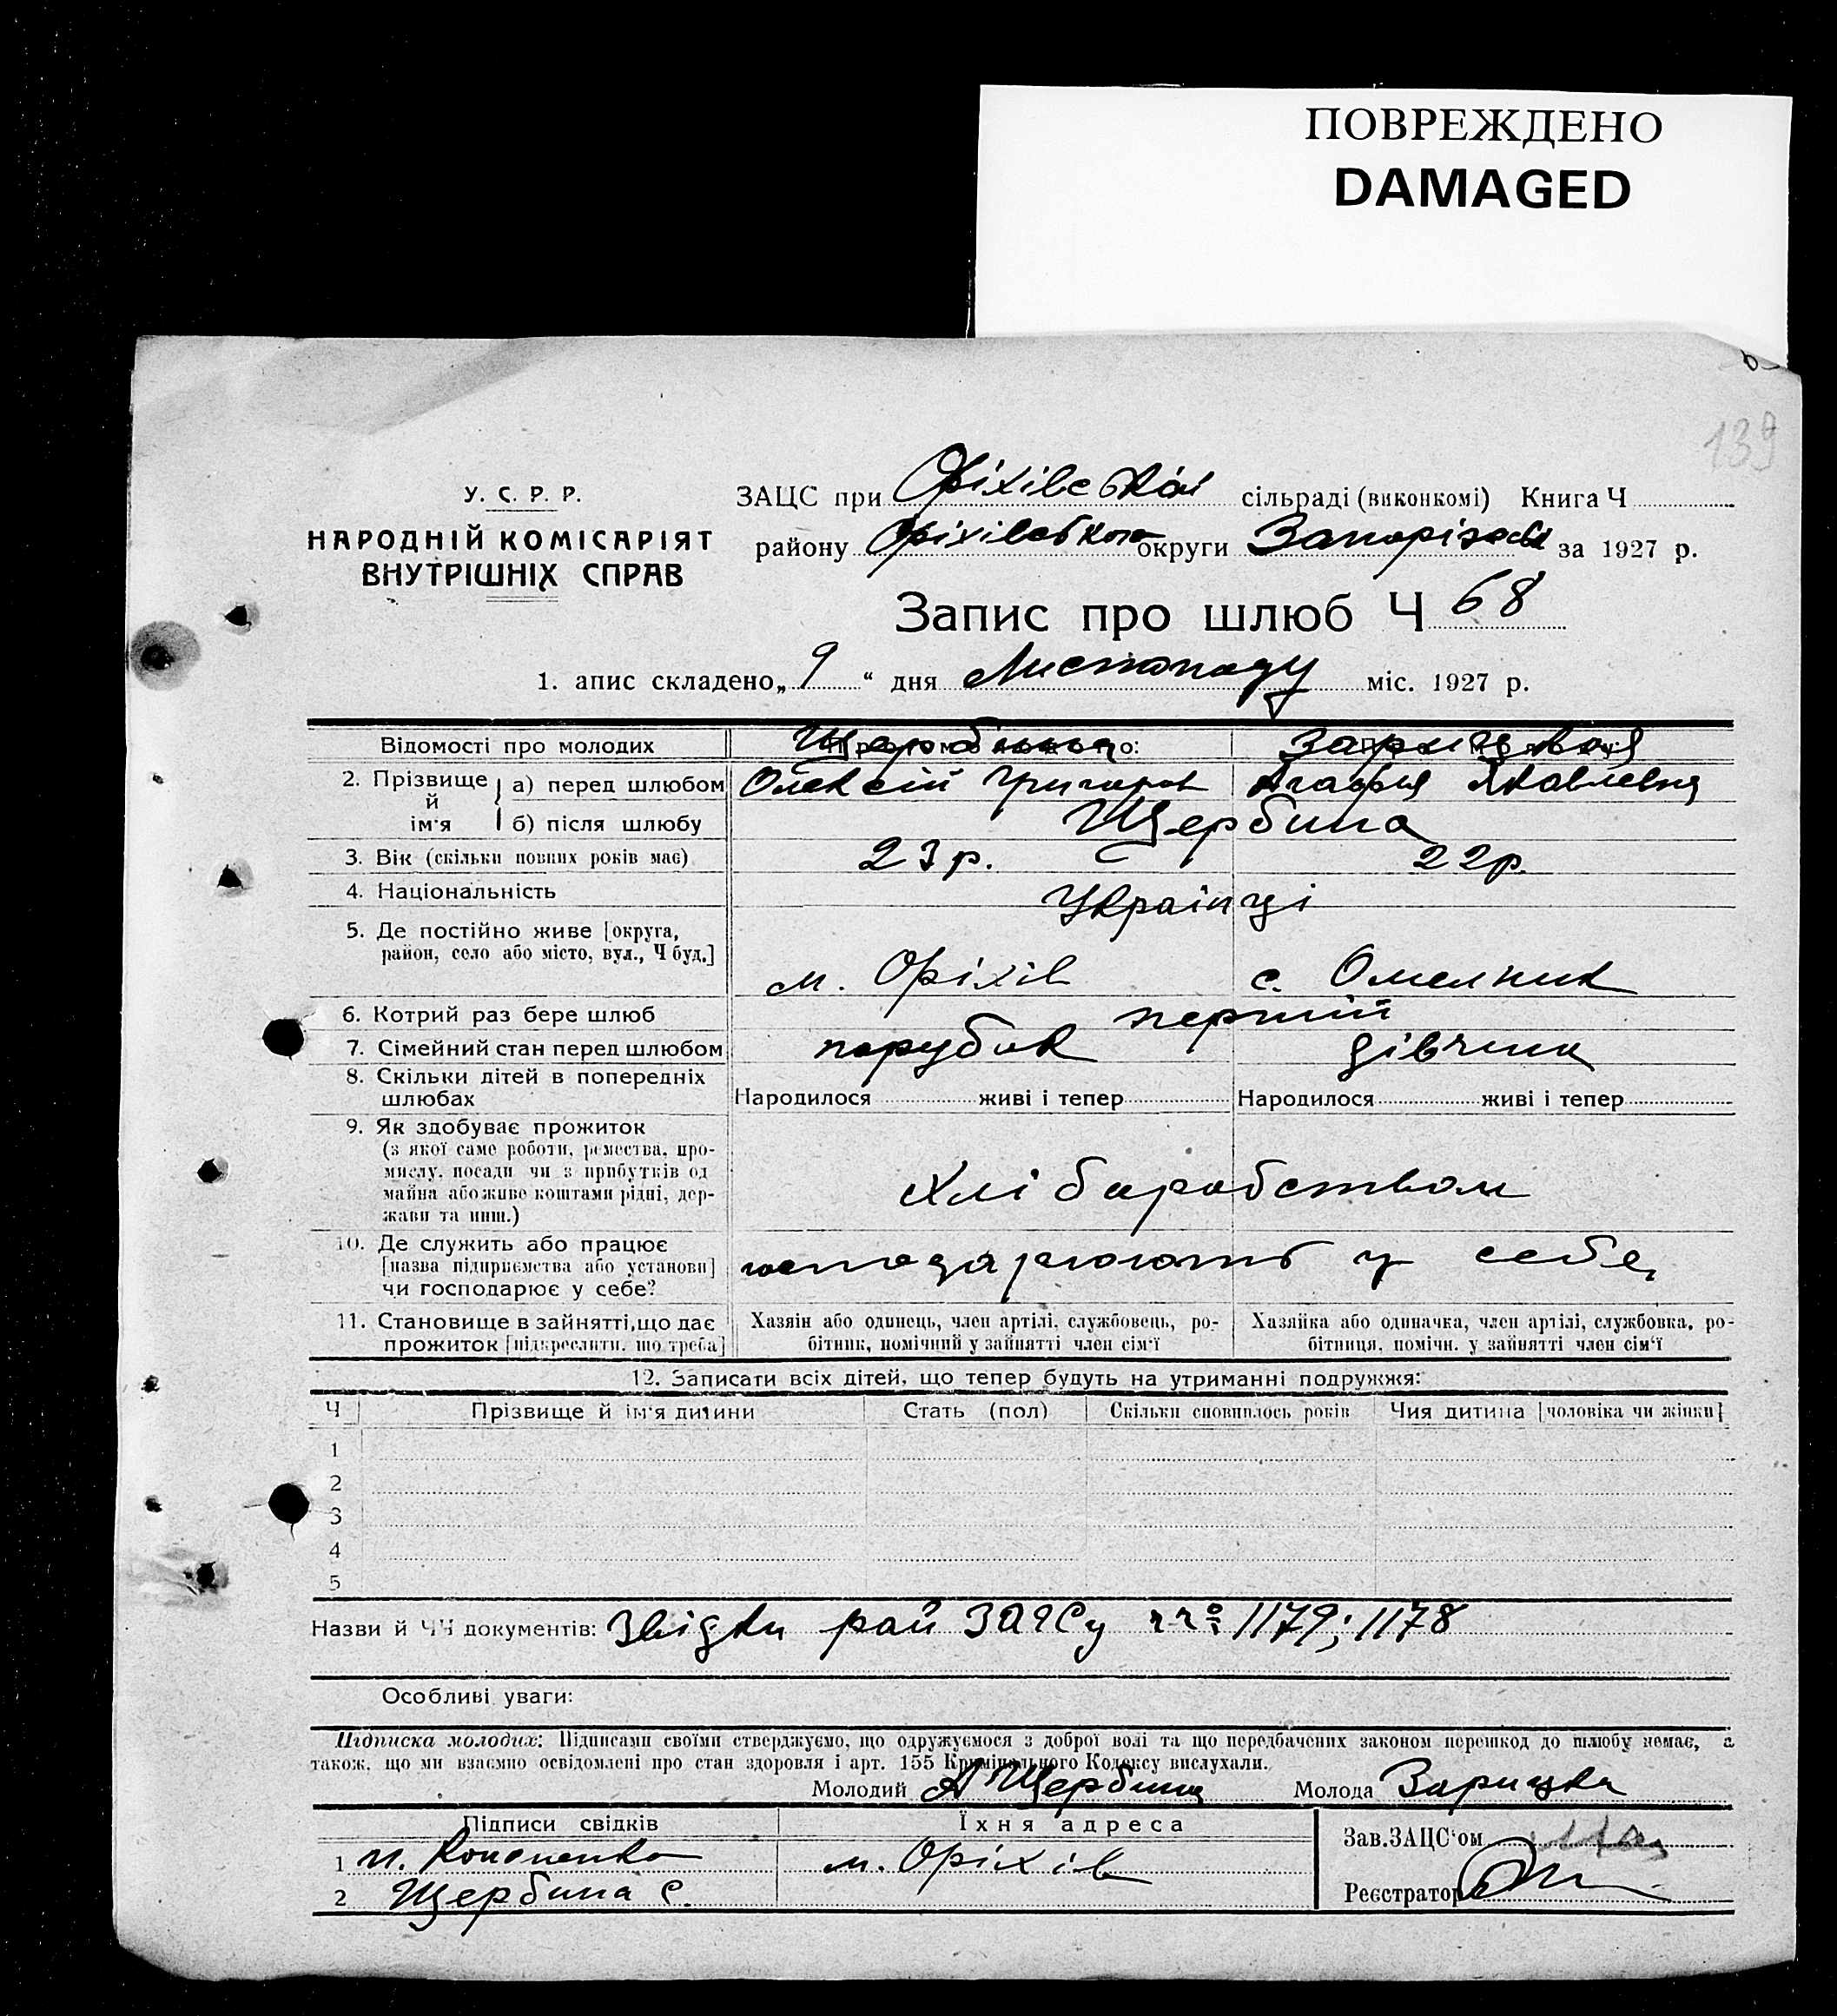 ПОВРЕЖДЕНО
DAMAGED
139
У. С. Р. Р.
НАРОДНІЙ КОМІСАРІЯТ
ВНУТРІШНІХ СПРАВ
ЗАЦС при Оріхівській сільраді (виконкомі) Книга Ч
району Оріхівського округи Запорізьк за 1927 р.
Запис про шлюб Ч 68
1. апис складено „ 9 “ дня Листопаду міс. 1927 р.
Відомості про молодих Щербина Зарицкая
2. Прізвище й ім'я а) перед шлюбом Олексій Григоров Агафья Яковлевна
б) після шлюбу Щербина
3. Вік (скільки повних років має) 23 р. 22 р.
4. Національність Українці
5. Де постійно живе [округа,
район, село або місто, вул., Ч буд.] м. Оріхів с. Омелник
6. Котрий раз бере шлюб перший
7. Сімейний стан перед шлюбом парубок дівчина
8. Скільки дітей в попередніх
шлюбах Народилося живі і тепер Народилося живі і тепер
9. Як здобуває прожиток
(з якої саме роботи, ремества, про-
мислу, посади чи з прибутків од
майна або живе коштами рідні, дер-
жави та инш.) Хліборобством
10. Де служить або працює
[назва підприємства або установи]
чи господарює у себе? господарюють у себе,
11. Становище в зайнятті, що дає
прожиток [підкреслити, що треба]
Хазяін або одинець, член артілі, службовець, ро-
бітник, помічний у зайнятті член сім'ї
Хазяйка або одиначка, член артілі, службовка, ро-
бітниця, помічн. у зайнятті член сім'ї
12. Записати всіх дітей, що тепер будуть на утриманні подружжя:
Ч Прізвище й ім'я дитини Стать (пол) Скільки сповнилось років Чия дитина [чоловіка чи жінки]
1
2
3
4
5
Назви й ЧЧ документів: Звідки рай ЗАЦСу чч 1179; 1178
Особливі уваги:
Підписка молодих: Підписами своїми стверджуємо, що одружуємося з доброї волі та що передбачених законом перешкод до шлюбу немає, а
також, що ми взаємно освідомлені про стан здоровля і арт. 155 Кримінального Кодексу вислухали.
Молодий А Щербина Молода Зарицка
Підписи свідків Їхня адреса
1 Кононенко м. Оріхів
2 Щербина С.
Зав. ЗАЦС'ом
Реєстратор